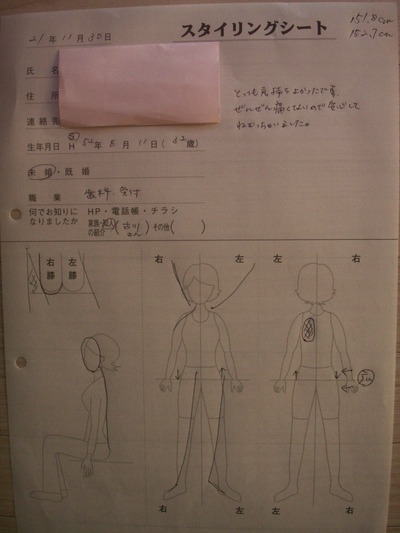 スタイリングシート
151.8cm
152.7cm
21年11月30日
氏名
住所
連絡先
とっても気持ちよかったです。
ぜんぜん痛くないので安心して
ねむっちゃいました。
生年月日 S H 52年8月11日(32歳)
未婚・既婚
職業 歯科 受付
何でお知りに HP・電話帳・チラシ
なりましたか 家族・知人の紹介(古川さん) その他( )
右 左 左 右
右膝 左膝
右 左 左 右